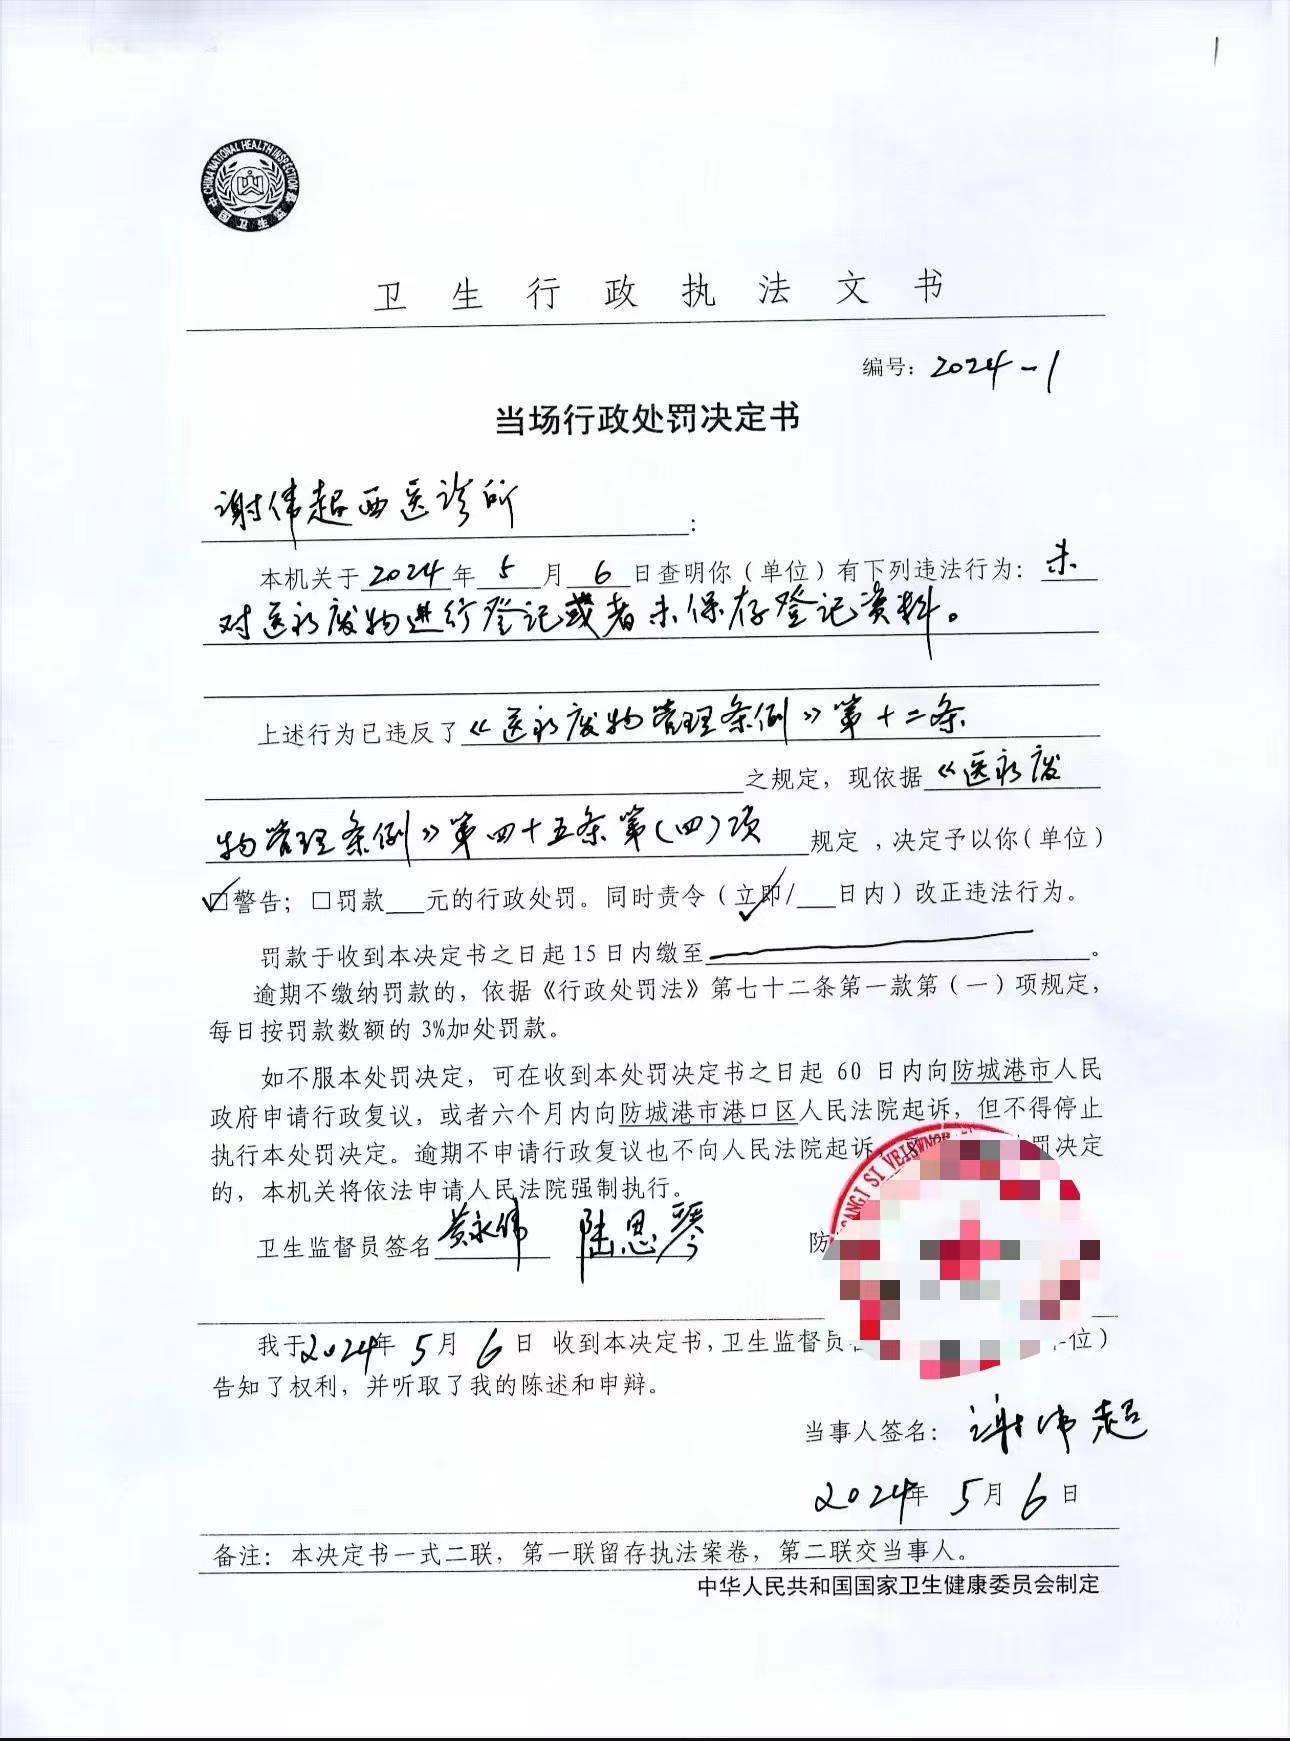 1
CHINA NATIONAL HEALTH INSPECTION
中国卫生监督
卫生行政执法文书
编号：2024-1
当场行政处罚决定书
谢伟超西医诊所：
本机关于2024年5月6日查明你（单位）有下列违法行为：未
对医疗废物进行登记或者未保存登记资料。
上述行为已违反了《医疗废物管理条例》第十二条
之规定，现依据《医疗废
物管理条例》第四十五条第（四）项规定，决定予以你（单位）
☑警告；□罚款___元的行政处罚。同时责令（立即✓/___日内）改正违法行为。
罚款于收到本决定书之日起15日内缴至。
逾期不缴纳罚款的，依据《行政处罚法》第七十二条第一款第（一）项规定，
每日按罚款数额的 3%加处罚款。
如不服本处罚决定，可在收到本处罚决定书之日起 60 日内向防城港市人民
政府申请行政复议，或者六个月内向防城港市港口区人民法院起诉，但不得停止
执行本处罚决定。逾期不申请行政复议也不向人民法院起诉，罚决定
的，本机关将依法申请人民法院强制执行。
卫生监督员签名 黄永伟 陆思琴 防
我于2024年5月6日 收到本决定书，卫生监督员 单位）
告知了权利，并听取了我的陈述和申辩。
当事人签名：谢伟超
2024年5月6日
备注：本决定书一式二联，第一联留存执法案卷，第二联交当事人。
中华人民共和国国家卫生健康委员会制定